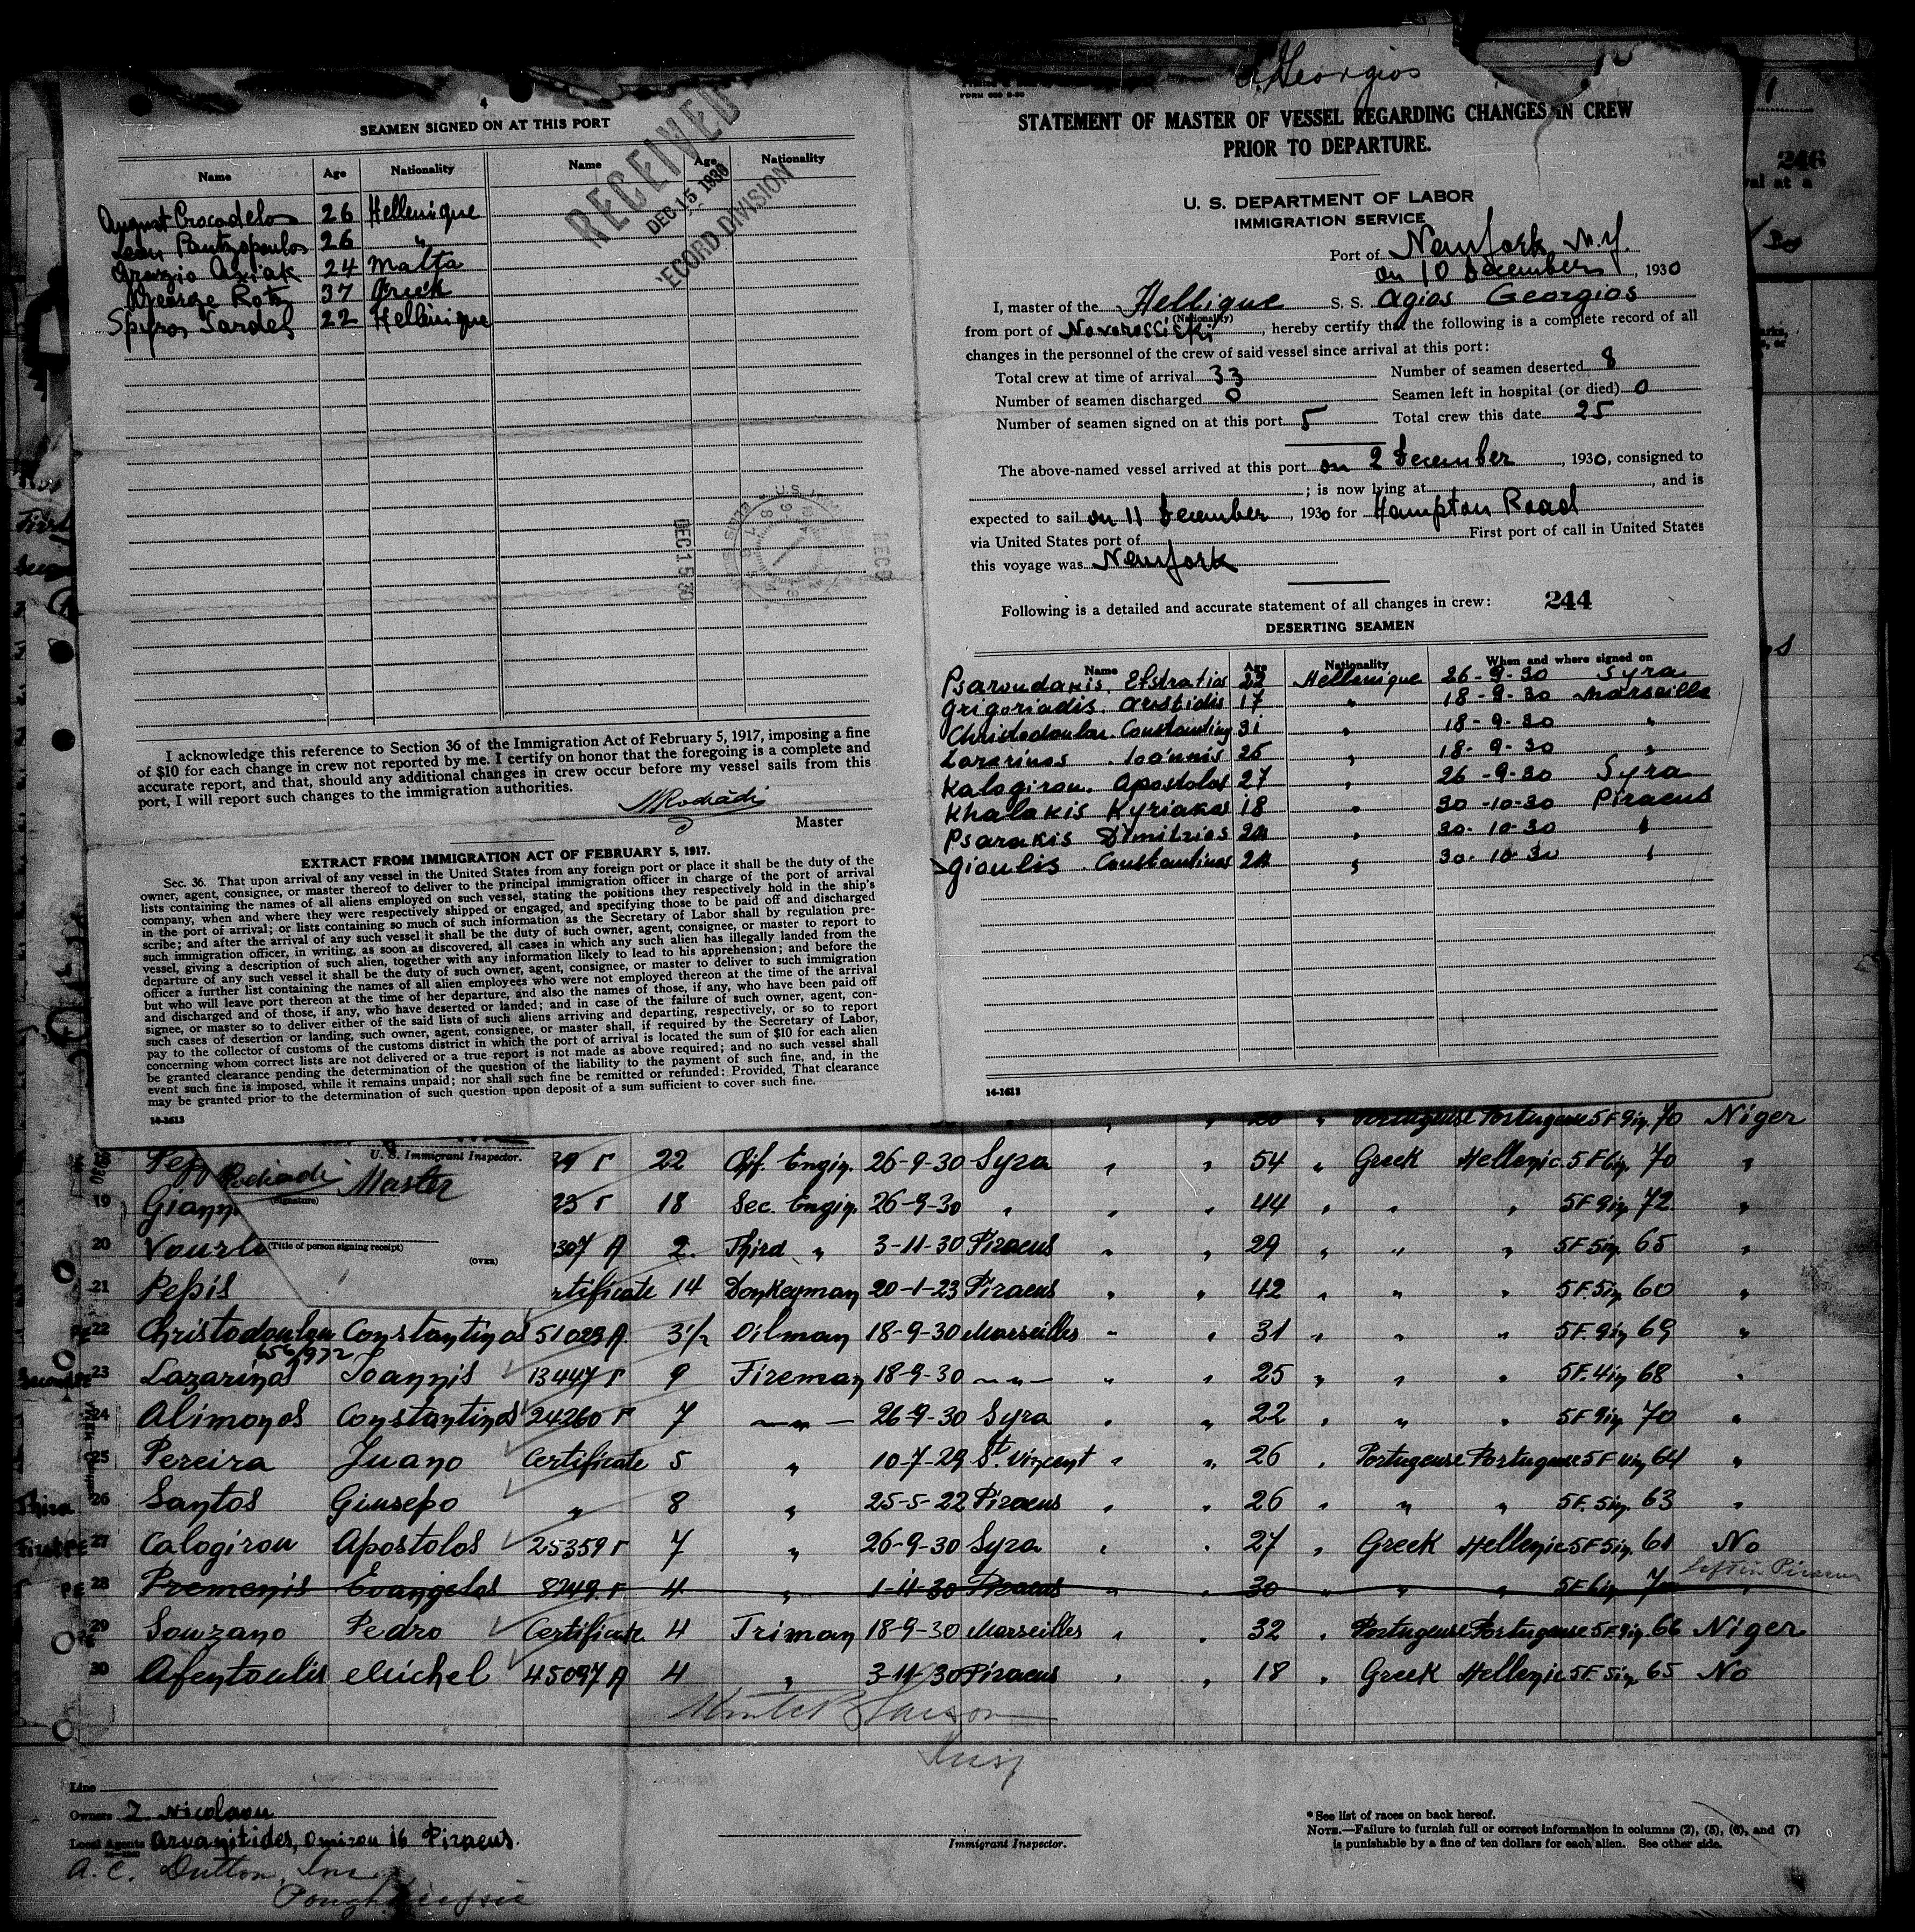 4
SEAMEN SIGNED ON AT THIS PORT
Name Age Nationality Name Age Nationality
August Crocodelos 26 Hellenique
Leon Pantzopoulos 26 "
Grazio Aziak 24 Malta
George Rotz 37 Greek
Spyros Sardel 22 Hellenique
RECEIVED
DEC 15 1930
RECORD DIVISION
DEC 15 30
RECD
I acknowledge this reference to Section 36 of the Immigration Act of February 5, 1917, imposing a fine
of $10 for each change in crew not reported by me. I certify on honor that the foregoing is a complete and
accurate report, and that, should any additional changes in crew occur before my vessel sails from this
port, I will report such changes to the immigration authorities.
Master
EXTRACT FROM IMMIGRATION ACT OF FEBRUARY 5, 1917.
Sec. 36. That upon arrival of any vessel in the United States from any foreign port or place it shall be the duty of the
owner, agent, consignee, or master thereof to deliver to the principal immigration officer in charge of the port of arrival
lists containing the names of all aliens employed on such vessel, stating the positions they respectively hold in the ship's
company, when and where they were respectively shipped or engaged, and specifying those to be paid off and discharged
in the port of arrival; or lists containing so much of such information as the Secretary of Labor shall by regulation pre-
scribe; and after the arrival of any such vessel it shall be the duty of such owner, agent, consignee, or master to report to
such immigration officer, in writing, as soon as discovered, all cases in which any such alien has illegally landed from the
vessel, giving a description of such alien, together with any information likely to lead to his apprehension; and before the
departure of any such vessel it shall be the duty of such owner, agent, consignee, or master to deliver to such immigration
officer a further list containing the names of all alien employees who were not employed thereon at the time of the arrival
but who will leave port thereon at the time of her departure, and also the names of those, if any, who have been paid off
and discharged and of those, if any, who have deserted or landed; and in case of the failure of such owner, agent, con-
signee, or master so to deliver either of the said lists of such aliens arriving and departing, respectively, or so to report
such cases of desertion or landing, such owner, agent, consignee, or master shall, if required by the Secretary of Labor,
pay to the collector of customs of the customs district in which the port of arrival is located the sum of $10 for each alien
concerning whom correct lists are not delivered or a true report is not made as above required; and no such vessel shall
be granted clearance pending the determination of the question of the liability to the payment of such fine, and, in the
event such fine is imposed, while it remains unpaid; nor shall such fine be remitted or refunded: Provided, That clearance
may be granted prior to the determination of such question upon deposit of a sum sufficient to cover such fine.
14-1613
Georgios
STATEMENT OF MASTER OF VESSEL REGARDING CHANGES IN CREW
PRIOR TO DEPARTURE.
U. S. DEPARTMENT OF LABOR
IMMIGRATION SERVICE
Port of New York N.Y.
on 10 December, 1930
I, master of the Hellique S. S. Agios Georgios
(Nationality)
from port of Novorossiski, hereby certify that the following is a complete record of all
changes in the personnel of the crew of said vessel since arrival at this port:
Total crew at time of arrival 33 Number of seamen deserted 8
Number of seamen discharged 0 Seamen left in hospital (or died) 0
Number of seamen signed on at this port 5 Total crew this date 25
The above-named vessel arrived at this port on 2 December, 1930, consigned to
; is now lying at , and is
expected to sail on 11 December, 1930 for Hampton Road
via United States port of First port of call in United States
this voyage was New York
Following is a detailed and accurate statement of all changes in crew: 244
DESERTING SEAMEN
Name Age Nationality When and where signed on
Psaroudakis Efstratios 22 Hellenique 26-9-30 Syra
Grigoriadis Aristidis 17 " 18-9-30 Marseille
Christodoulou Constantinos 31 " 18-9-30 "
Lazarinos Ioannis 25 " 18-9-30 "
Kalogirou Apostolos 27 " 26-9-30 Syra
Khalakis Kyriakos 18 " 30-10-30 Piraeus
Psarakis Dimitrios 24 " 30-10-30 "
Gioulis Constantinos 24 " 30-10-30 "
14-1613
246
Portuguese Portuguese 5F 9in 70 Niger
U. S. Immigrant Inspector.
Master
(Signature)
(Title of person signing receipt)
(OVER)
22 Chf. Engin. 26-9-30 Syra " " 54 " Greek Hellenic 5F 6in 70 "
19 Giann 18 Sec. Engin 26-9-30 " " " 44 " " " 5F 9in 72 "
20 Vourl 307 A 2 Third " 3-11-30 Piraeus " " 29 " " " 5F 5in 65 "
21 Pepis rtificate 14 Donkeyman 20-1-23 Piraeus " " 42 " " " 5F 5in 60 "
22 Christodoulou Constantinos 51029 A 3½ Oilman 18-9-30 Marseilles " " 31 " " " 5F 9in 69 "
656/972
23 Lazarinos Ioannis 13447 Γ 9 Fireman 18-9-30 -"- " " 25 " " " 5F 4in 68 "
24 Alimonos Constantinos 24260 Γ 7 -"- 26-9-30 Syra " " 22 " " " 5F 9in 70 "
25 Pereira Juano Certificate 5 " 10-7-29 St. Vincent " " 26 " Portuguese Portuguese 5F 4in 64 "
26 Santos Giusepo " 8 " 25-5-22 Piraeus " " 26 " " " 5F 5in 63 "
27 Calogirou Apostolos 25359 Γ 7 " 26-9-30 Syra " " 27 " Greek Hellenic 5F 5in 61 No
28 Premenis Evangelos 8249 Γ 4 " 1-11-30 Piraeus " " 30 " " " 5F 6in 70 Left in Piraeus
29 Souzano Pedro Certificate 4 Triman 18-9-30 Marseilles " " 32 " Portuguese Portuguese 5F 9in 66 Niger
30 Afentoulis Michel 45097 A 4 " 3-11-30 Piraeus " " 18 " Greek Hellenic 5F 5in 65 No
Insp
Line
Owners I. Nicolaou
Local Agents Arvanitides, Omirou 16 Piraeus.
A. C. Dutton, Inc
Poughkeepsie
Immigrant Inspector.
* See list of races on back hereof.
NOTE.—Failure to furnish full or correct information in columns (2), (5), (6), and (7)
is punishable by a fine of ten dollars for each alien. See other side.